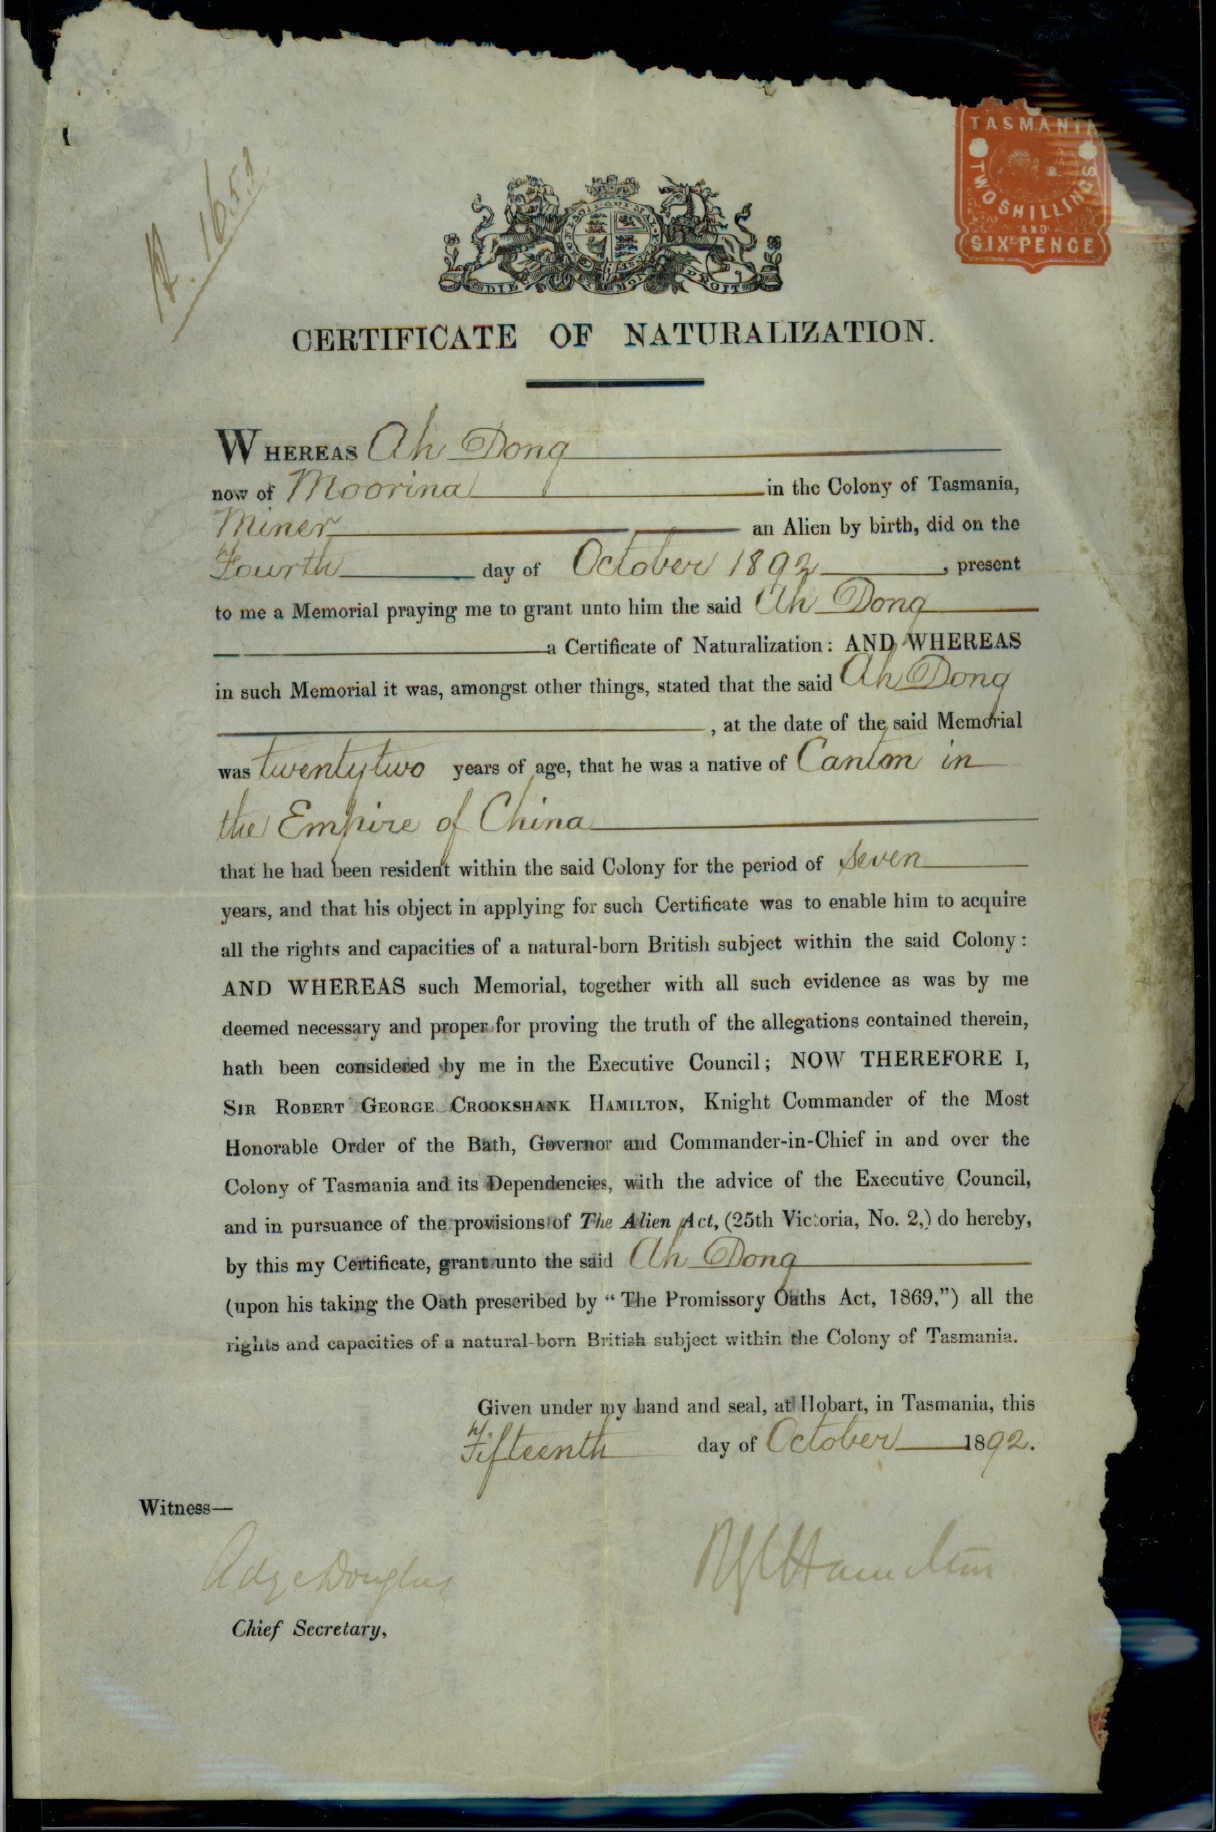 TASMANIA
TWO SHILLINGS
AND
SIXPENCE
1653
DIEU ET MON DROIT
CERTIFICATE OF NATURALIZATION.
WHEREAS Ah Dong
now of Moorina in the Colony of Tasmania,
Miner an Alien by birth, did on the
Fourth day of October 1892, present
to me a Memorial praying me to grant unto him the said Ah Dong
a Certificate of Naturalization: AND WHEREAS
in such Memorial it was, amongst other things, stated that the said Ah Dong
, at the date of the said Memorial
was twenty two years of age, that he was a native of Canton in
the Empire of China
that he had been resident within the said Colony for the period of seven
years, and that his object in applying for such Certificate was to enable him to acquire
all the rights and capacities of a natural-born British subject within the said Colony:
AND WHEREAS such Memorial, together with all such evidence as was by me
deemed necessary and proper for proving the truth of the allegations contained therein,
hath been considered by me in the Executive Council; NOW THEREFORE I,
SIR ROBERT GEORGE CROOKSHANK HAMILTON, Knight Commander of the Most
Honorable Order of the Bath, Governor and Commander-in-Chief in and over the
Colony of Tasmania and its Dependencies, with the advice of the Executive Council,
and in pursuance of the provisions of The Alien Act, (25th Victoria, No. 2,) do hereby,
by this my Certificate, grant unto the said Ah Dong
(upon his taking the Oath prescribed by "The Promissory Oaths Act, 1869,") all the
rights and capacities of a natural-born British subject within the Colony of Tasmania.
Given under my hand and seal, at Hobart, in Tasmania, this
Fifteenth day of October 1892.
Witness—
Adye Douglas
RGC Hamilton
Chief Secretary,